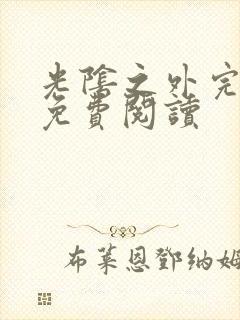 光陰之外完
免費閱讀
布萊恩鄧納姆